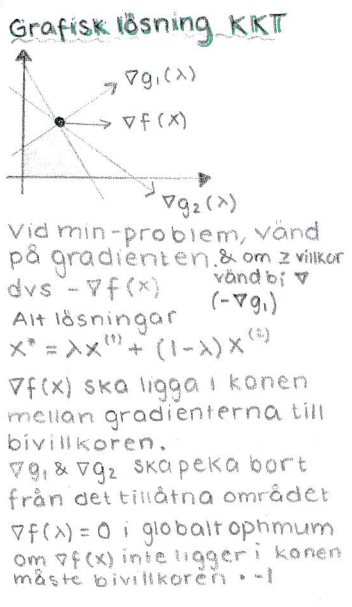 Grafisk lösning KKT
∇g₁(λ)
∇f(x)
∇g₂(λ)
Vid min-problem, vänd
på gradienten. & om ≥ villkor
dvs -∇f(x) vänd bi ∇
(-∇g₁)
Alt lösningar
x* = λx⁽¹⁾ + (1-λ)x⁽²⁾
∇f(x) ska ligga i konen
mellan gradienterna till
bivillkoren.
∇g₁ & ∇g₂ ska peka bort
från det tillåtna området
∇f(λ) = 0 i globalt optimum
om ∇f(x) inte ligger i konen
måste bivillkoren · -1